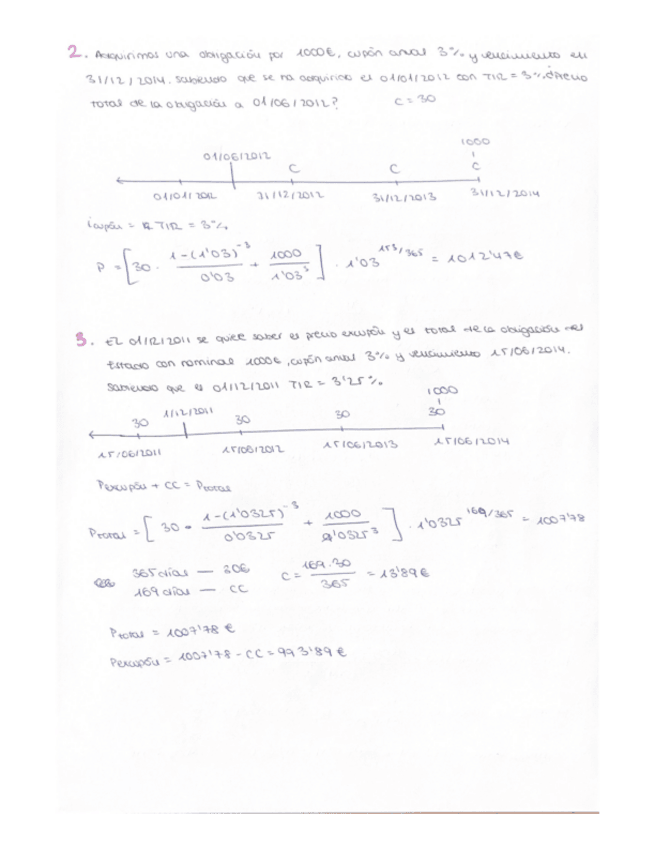 2. Adquirimos una obligación por 1000€, cupón anual 3% y vencimiento en
31/12/2014. Sabiendo que se ha adquirido el 01/01/2012 con TIR = 3% ¿Precio
total de la obligación a 01/06/2012? C = 30
1000
01/06/2012 C C C
01/01/2012 31/12/2012 31/12/2013 31/12/2014
i cupón = TIR = 3%
P = [30 · 1-(1'03)^-3 / 0'03 + 1000 / 1'03^3] · 1'03^153/365 = 1012'47€
3. El 01/12/2011 se quiere saber el precio excupón y el total de la obligación del
Estado con nominal 1000€, cupón anual 3% y vencimiento 15/06/2014.
Sabiendo que el 01/12/2011 TIR = 3'25%
1000
30 1/12/2011 30 30 30
15/06/2011 15/06/2012 15/06/2013 15/06/2014
Pexcupón + CC = Ptotal
Ptotal = [30 · 1-(1'0325)^-3 / 0'0325 + 1000 / 1'0325^3] · 1'0325^169/365 = 1007'78
365 días — 30€ C = 169·30 / 365 = 13'89€
169 días — CC
Ptotal = 1007'78 €
Pexcupón = 1007'78 - CC = 993'89 €